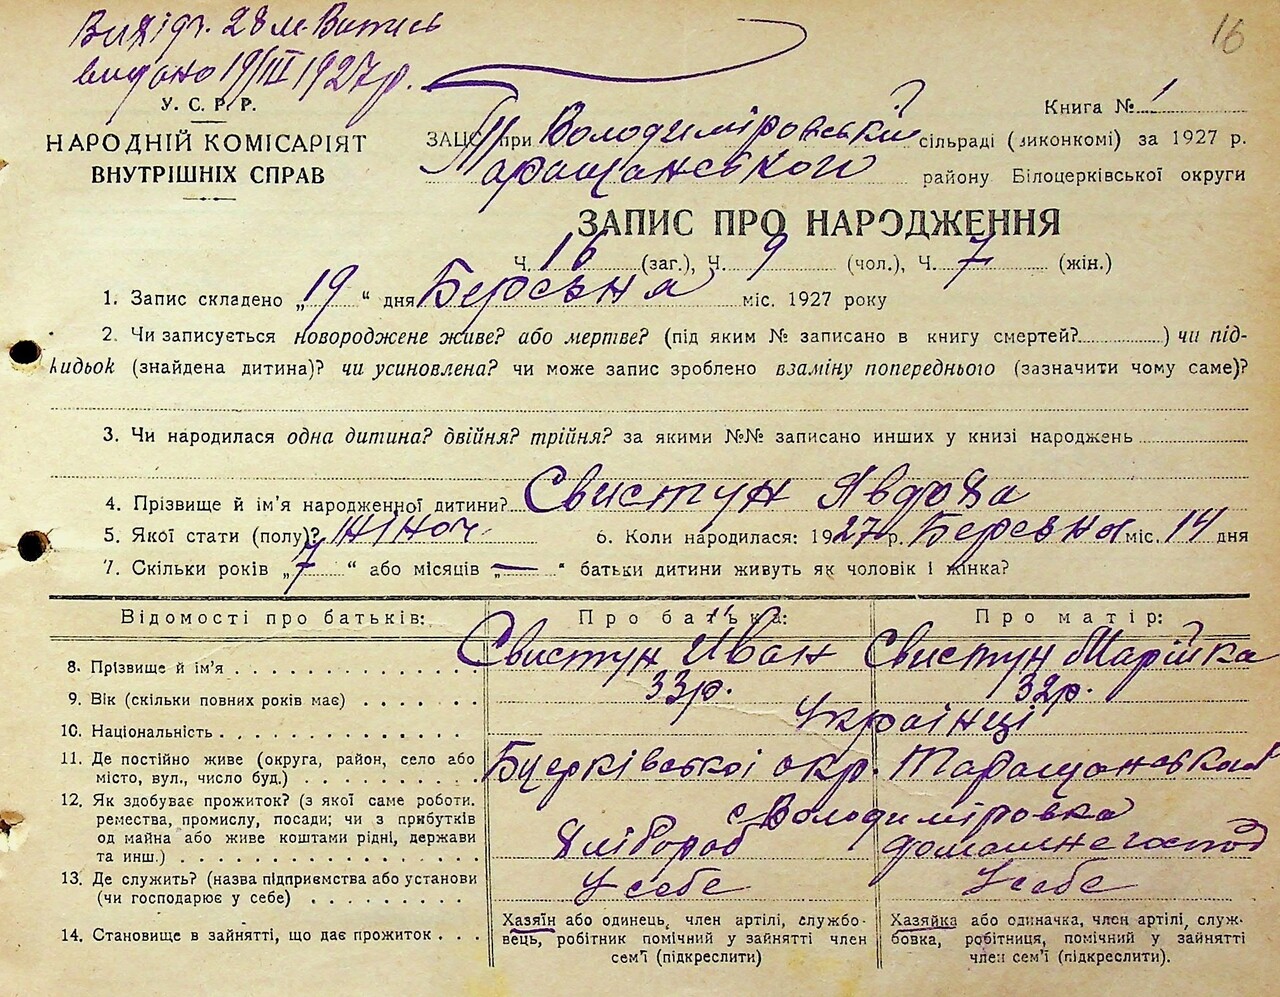 16
Вихідг. 28 м. Витись
видано 19/III 1927 р.
У. С. Р. Р.
НАРОДНІЙ КОМІСАРІЯТ
ВНУТРІШНІХ СПРАВ
Книга № 1
ЗАЦС при Володиміровській сільраді (виконкомі) за 1927 р.
Таращанського району Білоцерківської округи
ЗАПИС ПРО НАРОДЖЕННЯ
Ч. 16 (заг.), Ч. 9 (чол.), Ч. 7 (жін.)
1. Запис складено „19“ дня Березня міс. 1927 року
2. Чи записується новороджене живе? або мертве? (під яким № записано в книгу смертей?..........) чи під-
кидьок (знайдена дитина)? чи усиновлена? чи може запис зроблено взаміну попереднього (зазначити чому саме)?
3. Чи народилася одна дитина? двійня? трійня? за якими №№ записано инших у книзі народжень
4. Прізвище й ім'я народженної дитини? Свистун Явдоха
5. Якої стати (полу)? жіноч 6. Коли народилася: 1927 р. Березня міс. 14 дня
7. Скільки років „7“ або місяців „—“ батьки дитини живуть як чоловік і жінка?
Відомості про батьків: Про батька: Про матір:
8. Прізвище й ім'я . . . Свистун Іван Свистун Марійка
9. Вік (скільки повних років має) . . . 33 р. 32 р.
10. Національність . . . Українці
11. Де постійно живе (округа, район, село або
місто, вул., число буд.) . . . Бцерківської окр. Таращанського
с Володиміровка
12. Як здобуває прожиток? (з якої саме роботи.
ремества, промислу, посади; чи з прибутків
од майна або живе коштами рідні, держави
та инш.) . . . Хлібороб домашнє господ
13. Де служить? (назва підприємства або установи
(чи господарює у себе) . . . У себе У себе
14. Становище в зайнятті, що дає прожиток . . .
Хазяїн або одинець, член артілі, службо-
вець, робітник помічний у зайнятті член
сем'ї (підкреслити)
Хазяйка або одиначка, член артілі, служ-
бовка, робітниця, помічний у зайнятті
член сем'ї (підкреслити).